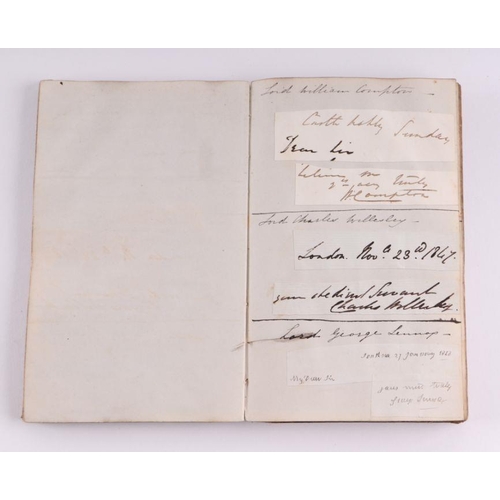 Lord William Compton —
Castle Ashby Sunday
Dear Sir
believe me
yrs very truly
WCompton
Lord Charles Wellesley —
London. Nov. 23rd 1847.
your obedient Servant
Charles Wellesley.
Lord George Lennox —
27 January
My Dear Sir
yours most truly
George Lennox